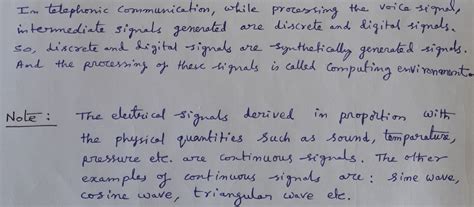 In telephonic communication, while processing the voice signal,
intermediate signals generated are discrete and digital signals.
So, discrete and digital signals are synthetically generated signals.
And the processing of these signals is called computing environment.
Note : The electrical signals derived in proportion with
the physical quantities such as sound, temparature,
pressure etc. are continuous signals. The other
examples of continuous signals are : sine wave,
cosine wave, triangular wave etc.